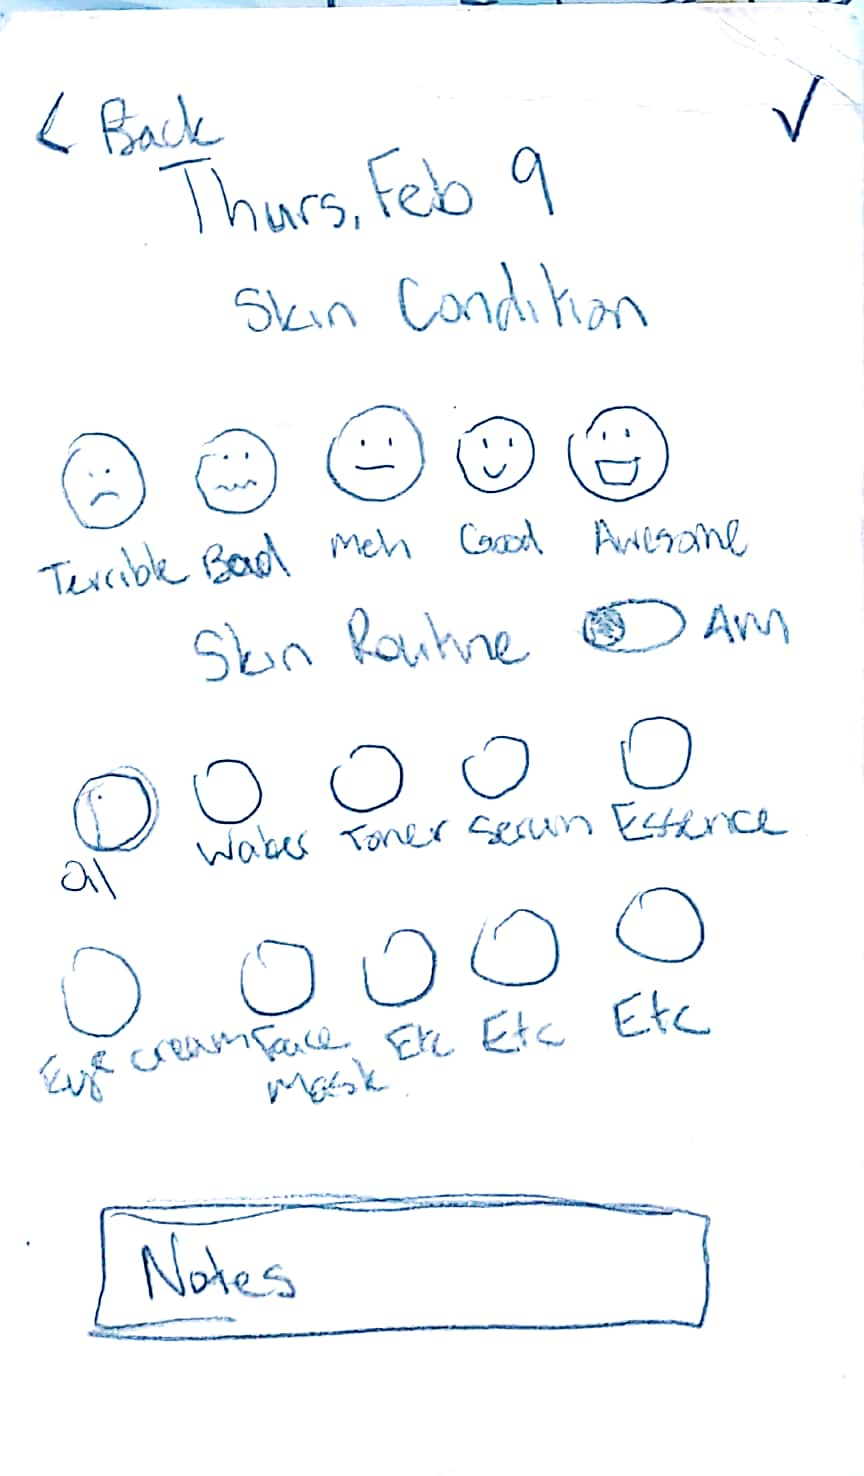 < Back
Thurs, Feb 9
Skin Condition
Terrible Bad Meh Good Awesome
Skin Routine AM
Oil Water Toner Serum Essence
Eye cream Face Mask Etc Etc Etc
Notes